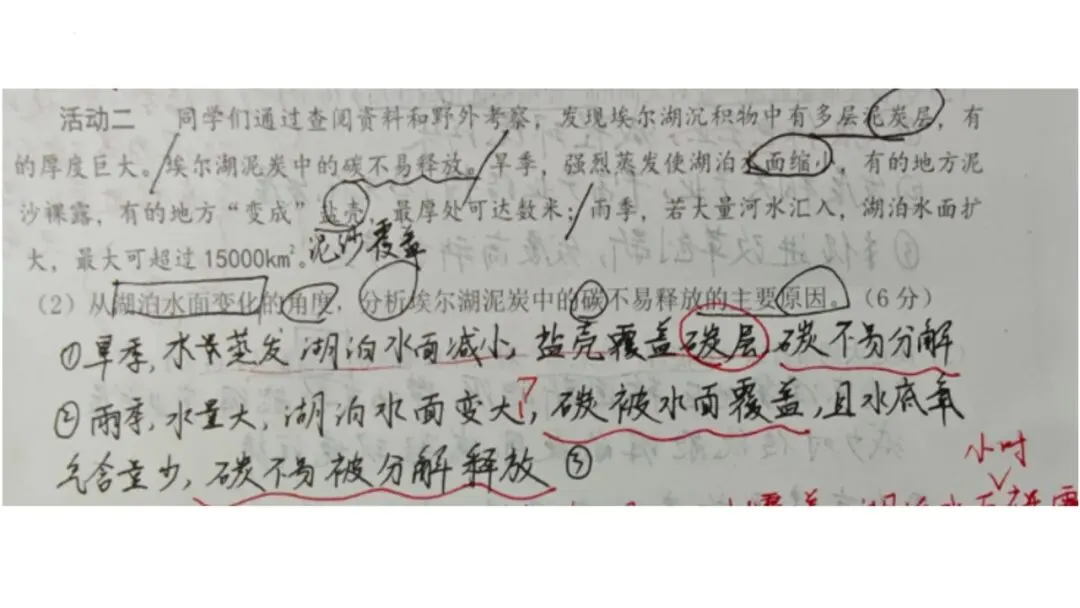 活动二 同学们通过查阅资料和野外考察，发现埃尔湖沉积物中有多层泥炭层，有
的厚度巨大。埃尔湖泥炭中的碳不易释放。旱季，强烈蒸发使湖泊水面缩小，有的地方泥
沙裸露，有的地方“变成”盐壳，最厚处可达数米；雨季，若大量河水汇入，湖泊水面扩
大，最大可超过15000km²。泥沙覆盖
（2）从湖泊水面变化的角度，分析埃尔湖泥炭中的碳不易释放的主要原因。（6分）
①旱季，水量蒸发湖泊水面减小，盐壳覆盖碳层碳不易分解
②雨季，水量大，湖泊水面变大，碳被水面覆盖，且水底氧
?
气含量少，碳不易被分解释放③
小时